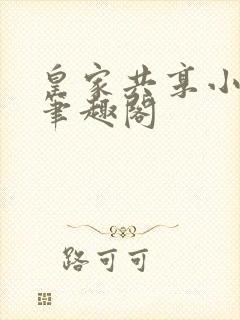 皇家共享小
笔趣阁
路可可